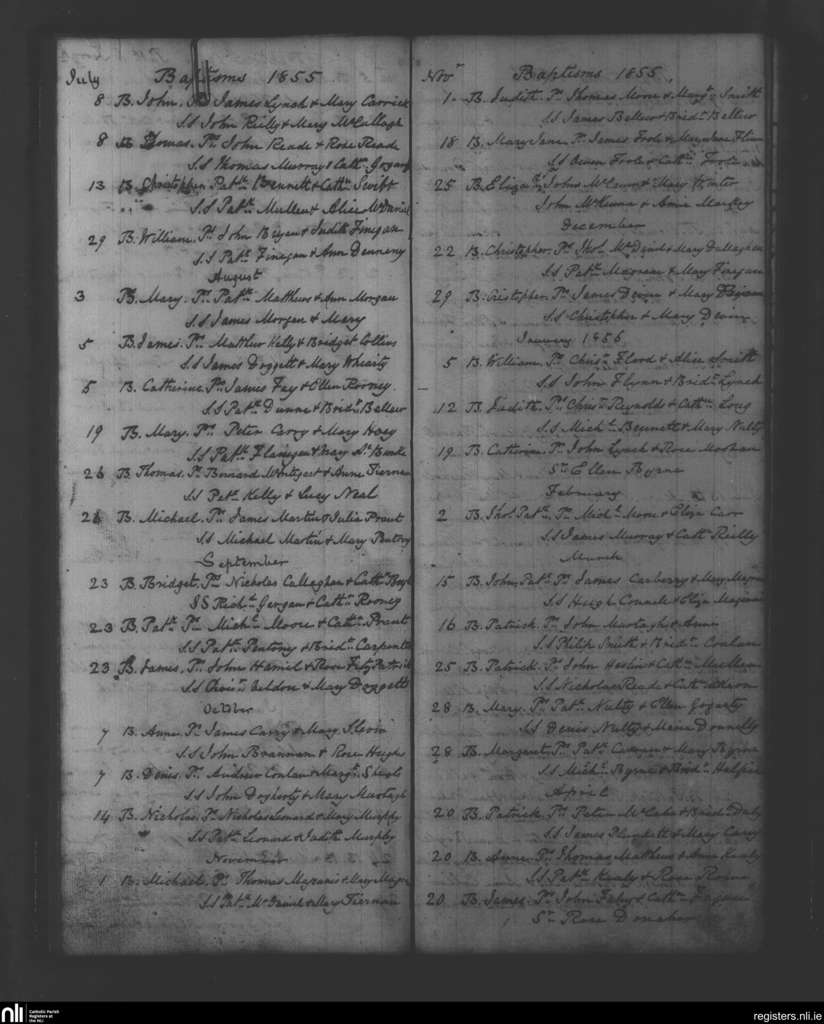 July Baptisms 1855
8 B. John. Ps James Lynch & Mary Carrick
S.S John Reilly & Mary McCullagh
8 B Thomas. Ps John Reade & Rose Reade
S.S Thomas Murray & Cathn Gogarty
13 B Christopher. Patk Bennett & Cathn Swift
S.S Patk Mullen & Alice McDaniel
29 B. William. Ps John Bryan & Judith Finegan
S.S Patk Finegan & Ann Denneny
August
3 B. Mary. Ps Patk Matthews & Ann Morgan
S.S James Morgan & Mary
5 B. James. Ps Matthew Kelly & Bridget Collins
S.S James Doggett & Mary
5 B. Catherine. Ps James Fay & Ellen Rooney
S.S Patk Dunne & Bridt Bellew
19 B. Mary. Ps Peter Carry & Mary Hoey
S.S Patk Flanegan & Mary
26 B Thomas. Ps Bernard & Anne Tiernan
S.S Patk Kelly & Lucy Neal
26 B. Michael. Ps James Martin & Julia Prout
S.S Michael Martin & Mary Pentony
September
23 B. Bridget. Ps Nicholas Callaghan & Cathn
S.S Richd Gergan & Cathn Rooney
23 B. Patk Ps Michl Moore & Cathn Prout
S.S Patk Pentony & Bridt Carpenter
23 B. James. Ps John Hamil & Rose
S.S Christr Weldon & Mary Doggett
October
7 B. Anne. Ps James Carry & Mary Slevin
S.S John Brannan & Rose Hughes
7 B. Denis. Ps Andrew Conlan & Margt Sheils
S.S John Dogherty & Mary Murtagh
14 B. Nicholas. Ps Nicholas Leonard & Mary Murphy
S.S Patk Leonard & Judith Murphy
November
1 B. Michael. Ps Thomas & Mary
S.S Patk McDaniel & Mary Tiernan
Novr Baptisms 1855
1. B. Judith. Ps Thomas Moore & Margt Smith
S.S James Bellew & Bridt Bellew
18 B. Mary Jane. Ps James Foole & Mary Jane
S.S Owen Foole & Cathn Foole
25 B. Eliza Ps John & Mary
John & Anne
December
22 B. Christopher. Ps Thos McDaniel & Mary Callaghan
S.S Patk & Mary Finegan
29 B. Cristopher. Ps James Devin & Mary
S.S Christopher & Mary Devin
January 1856
5 B. William. Ps Christr Flood & Alice Smith
S.S John Flynn & Bridt Lynch
12 B. Judith. Ps Christr Reynolds & Cathn Long
S.S Michl Bennett & Mary Nulty
19 B. Catherine. Ps John Lynch & Rose
Sr Ellen Byrne
February
2 B. Thos Patk Ps Michl Moore & Eliza Carr
S.S James Murray & Cathn Reilly
March
15 B. John Patk Ps James Carberry & Mary
S.S Hugh & Eliza
16 B. Patrick. Ps John Murtagh & Anne
S.S Philip Smith & Bridt Conlan
25 B. Patrick. Ps John & Cathn
S.S Nicholas Reade & Cathn
28 B. Mary. Ps Patk Nulty & Ellen Gogarty
S.S Denis Nulty & Maria Donnelly
28 B. Margaret. Ps Patk & Mary Byrne
S.S Michl Byrne & Bridt Halpin
April
20 B. Patrick. Ps Peter McCabe & Bridt Daly
S.S James Plunkett & Mary Carry
20 B. Anne. Ps Thomas Matthews & Anne Kealy
S.S Patk Kealy & Rose
20 B. James. Ps John & Cathn
Sr Rose
nli Catholic Parish
Registers at
the NLI
registers.nli.ie